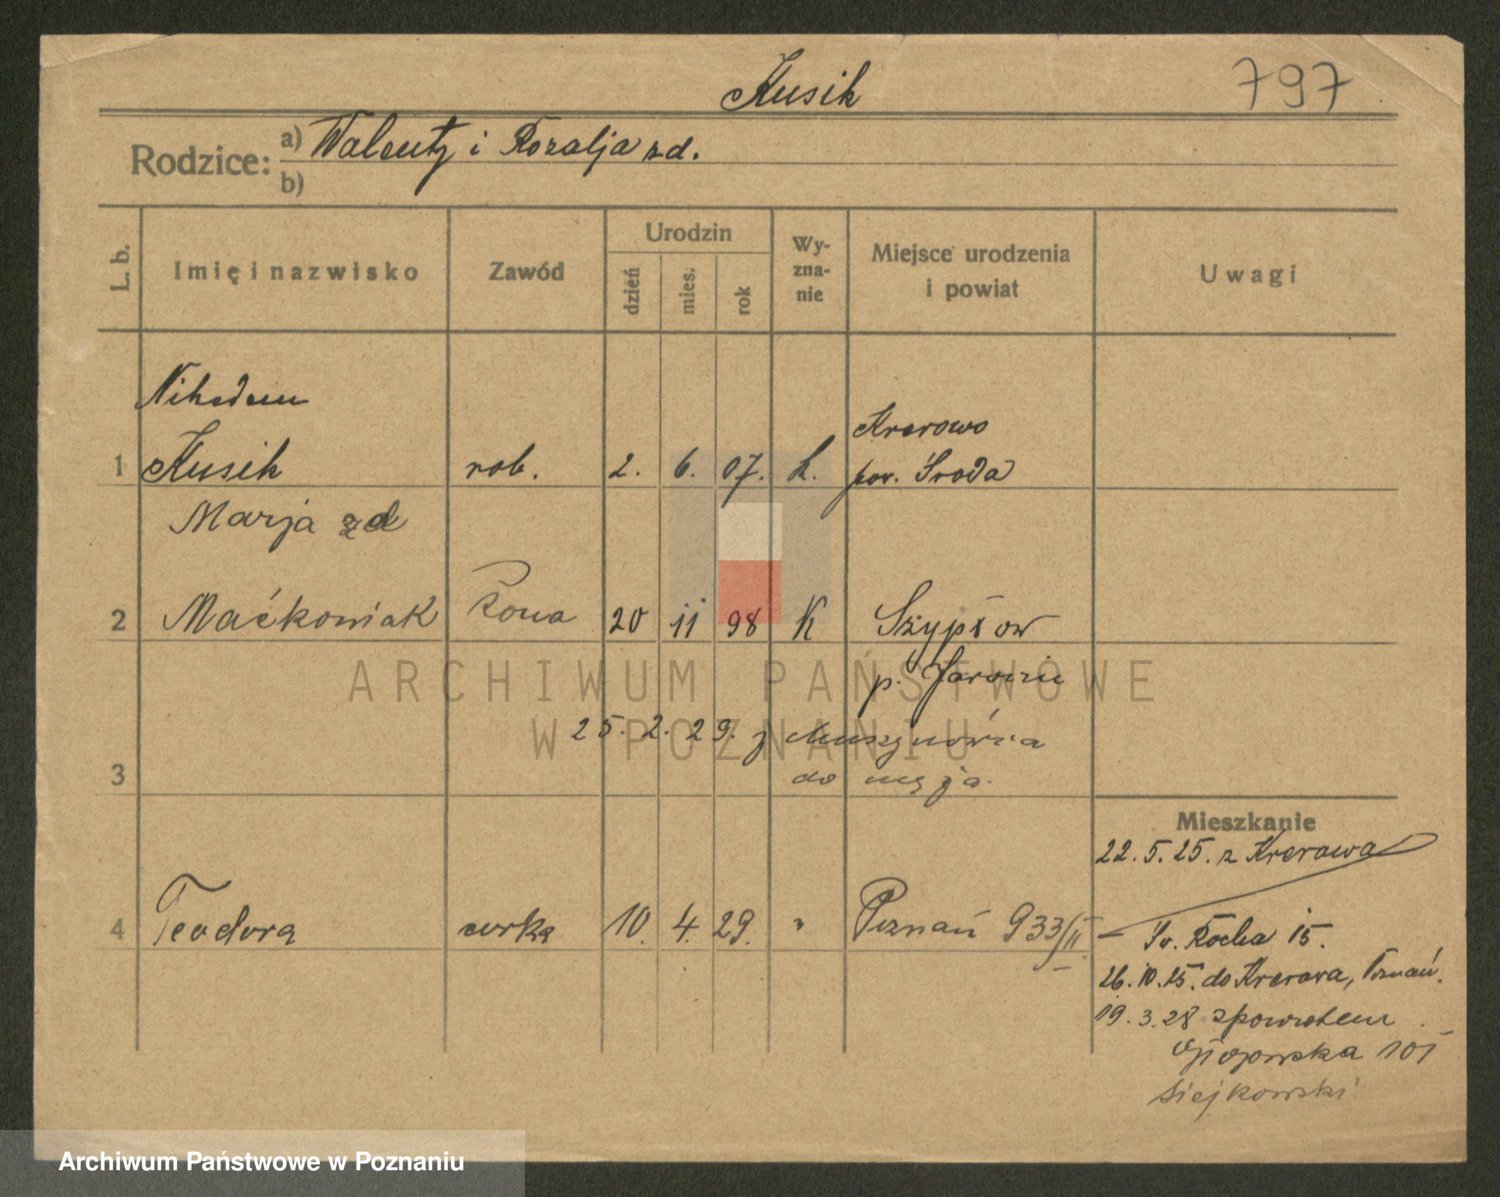 Kusik
797
Rodzice: a) Walenty i Rozalja zd.
b)
L. b.
Imię i nazwisko
Zawód
Urodzin
dzień
mies.
rok
Wy-
zna-
nie
Miejsce urodzenia
i powiat
Uwagi
Nikodem
Krerowo
1 Kusik rob. 2. 6. 07. k. pow. Środa
Marja zd
2 Maćkowiak żona 20 11 98 K Szypłow
p. Jarocin
25. 2. 29. z
3 do męża.
Mieszkanie
22. 5. 25. z Krerowa
4 Teodora córka 10. 4. 29. " Poznań 933/II
Św. Rocha 15.
26. 10. 25. do Krerowa, Poznań.
19. 3. 28 zpowrotem
Głogowska 101
Siejkowski
ARCHIWUM PAŃSTWOWE
W POZNANIU
Archiwum Państwowe w Poznaniu